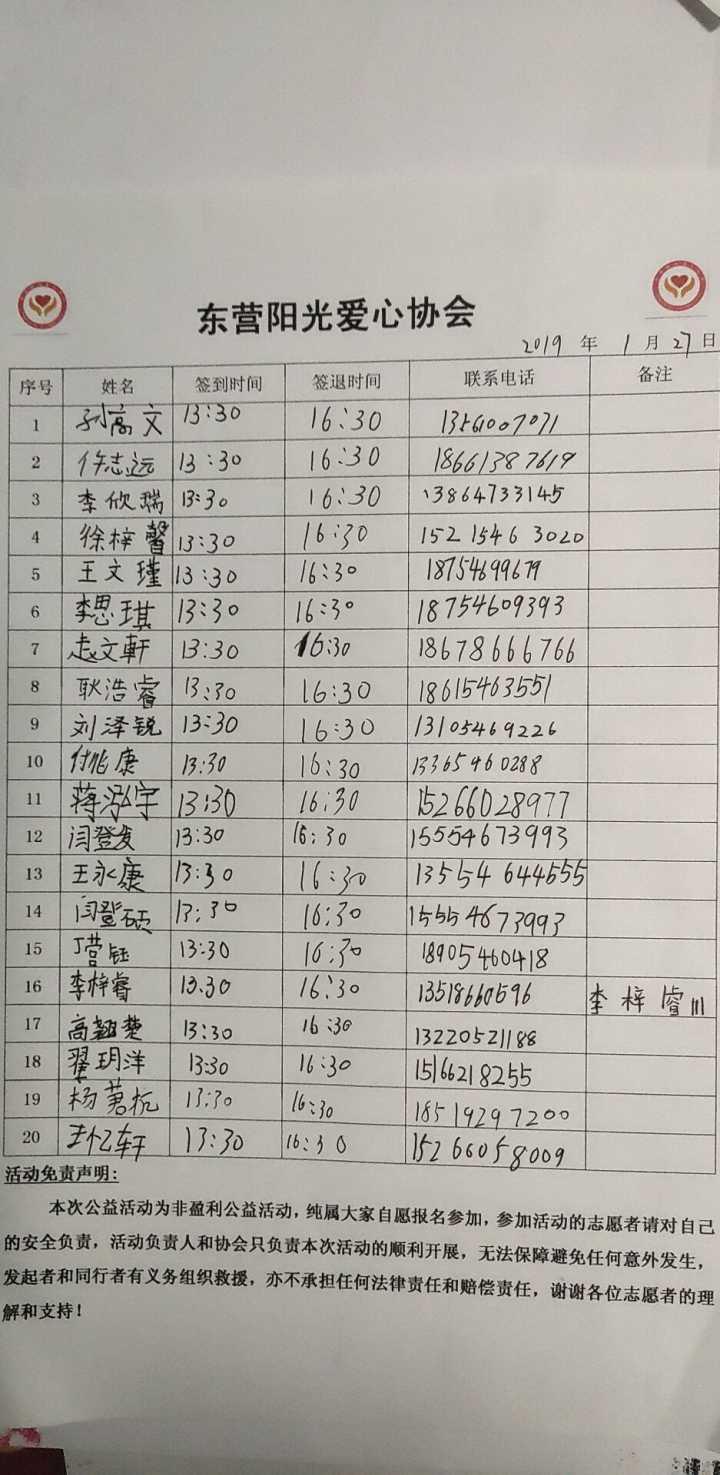 东营阳光爱心协会
2019 年 1 月 27 日
序号 姓名 签到时间 签退时间 联系电话 备注
1 孙高文 13:30 16:30
2 许志远 13:30 16:30 18661387619
3 李欣瑞 13:30 16:30 13864733145
4 徐梓馨 13:30 16:30 152 1546 3020
5 王文瑾 13:30 16:30 18754699679
6 李思琪 13:30 16:30 18754609393
7 孟文軒 13:30 16:30 18678666766
8 耿浩睿 13:30 16:30 18615463551
9 刘泽锐 13:30 16:30 13105469226
10 付兆康 13:30 16:30 13365460288
11 蒋泓宇 13:30 16:30 15266028977
12 闫登发 13:30 16:30 15554673993
13 王永康 13:30 16:30 13554 644555
14 闫登硕 13:30 16:30 15554673993
15 丁营钰 13:30 16:30 18905460418
16 李梓睿 13:30 16:30 13518660596 李 梓 睿 川
17 高 楚 13:30 16:30 13220521188
18 翟玥洋 13:30 16:30 15166218255
19 杨茗杭 13:30 16:30 18519297200
20 轩 13:30 16:30 15266058009
活动免责声明:
本次公益活动为非盈利公益活动，纯属大家自愿报名参加，参加活动的志愿者请对自己
的安全负责，活动负责人和协会只负责本次活动的顺利开展，无法保障避免任何意外发生，
发起者和同行者有义务组织救援，亦不承担任何法律责任和赔偿责任，谢谢各位志愿者的理
解和支持！